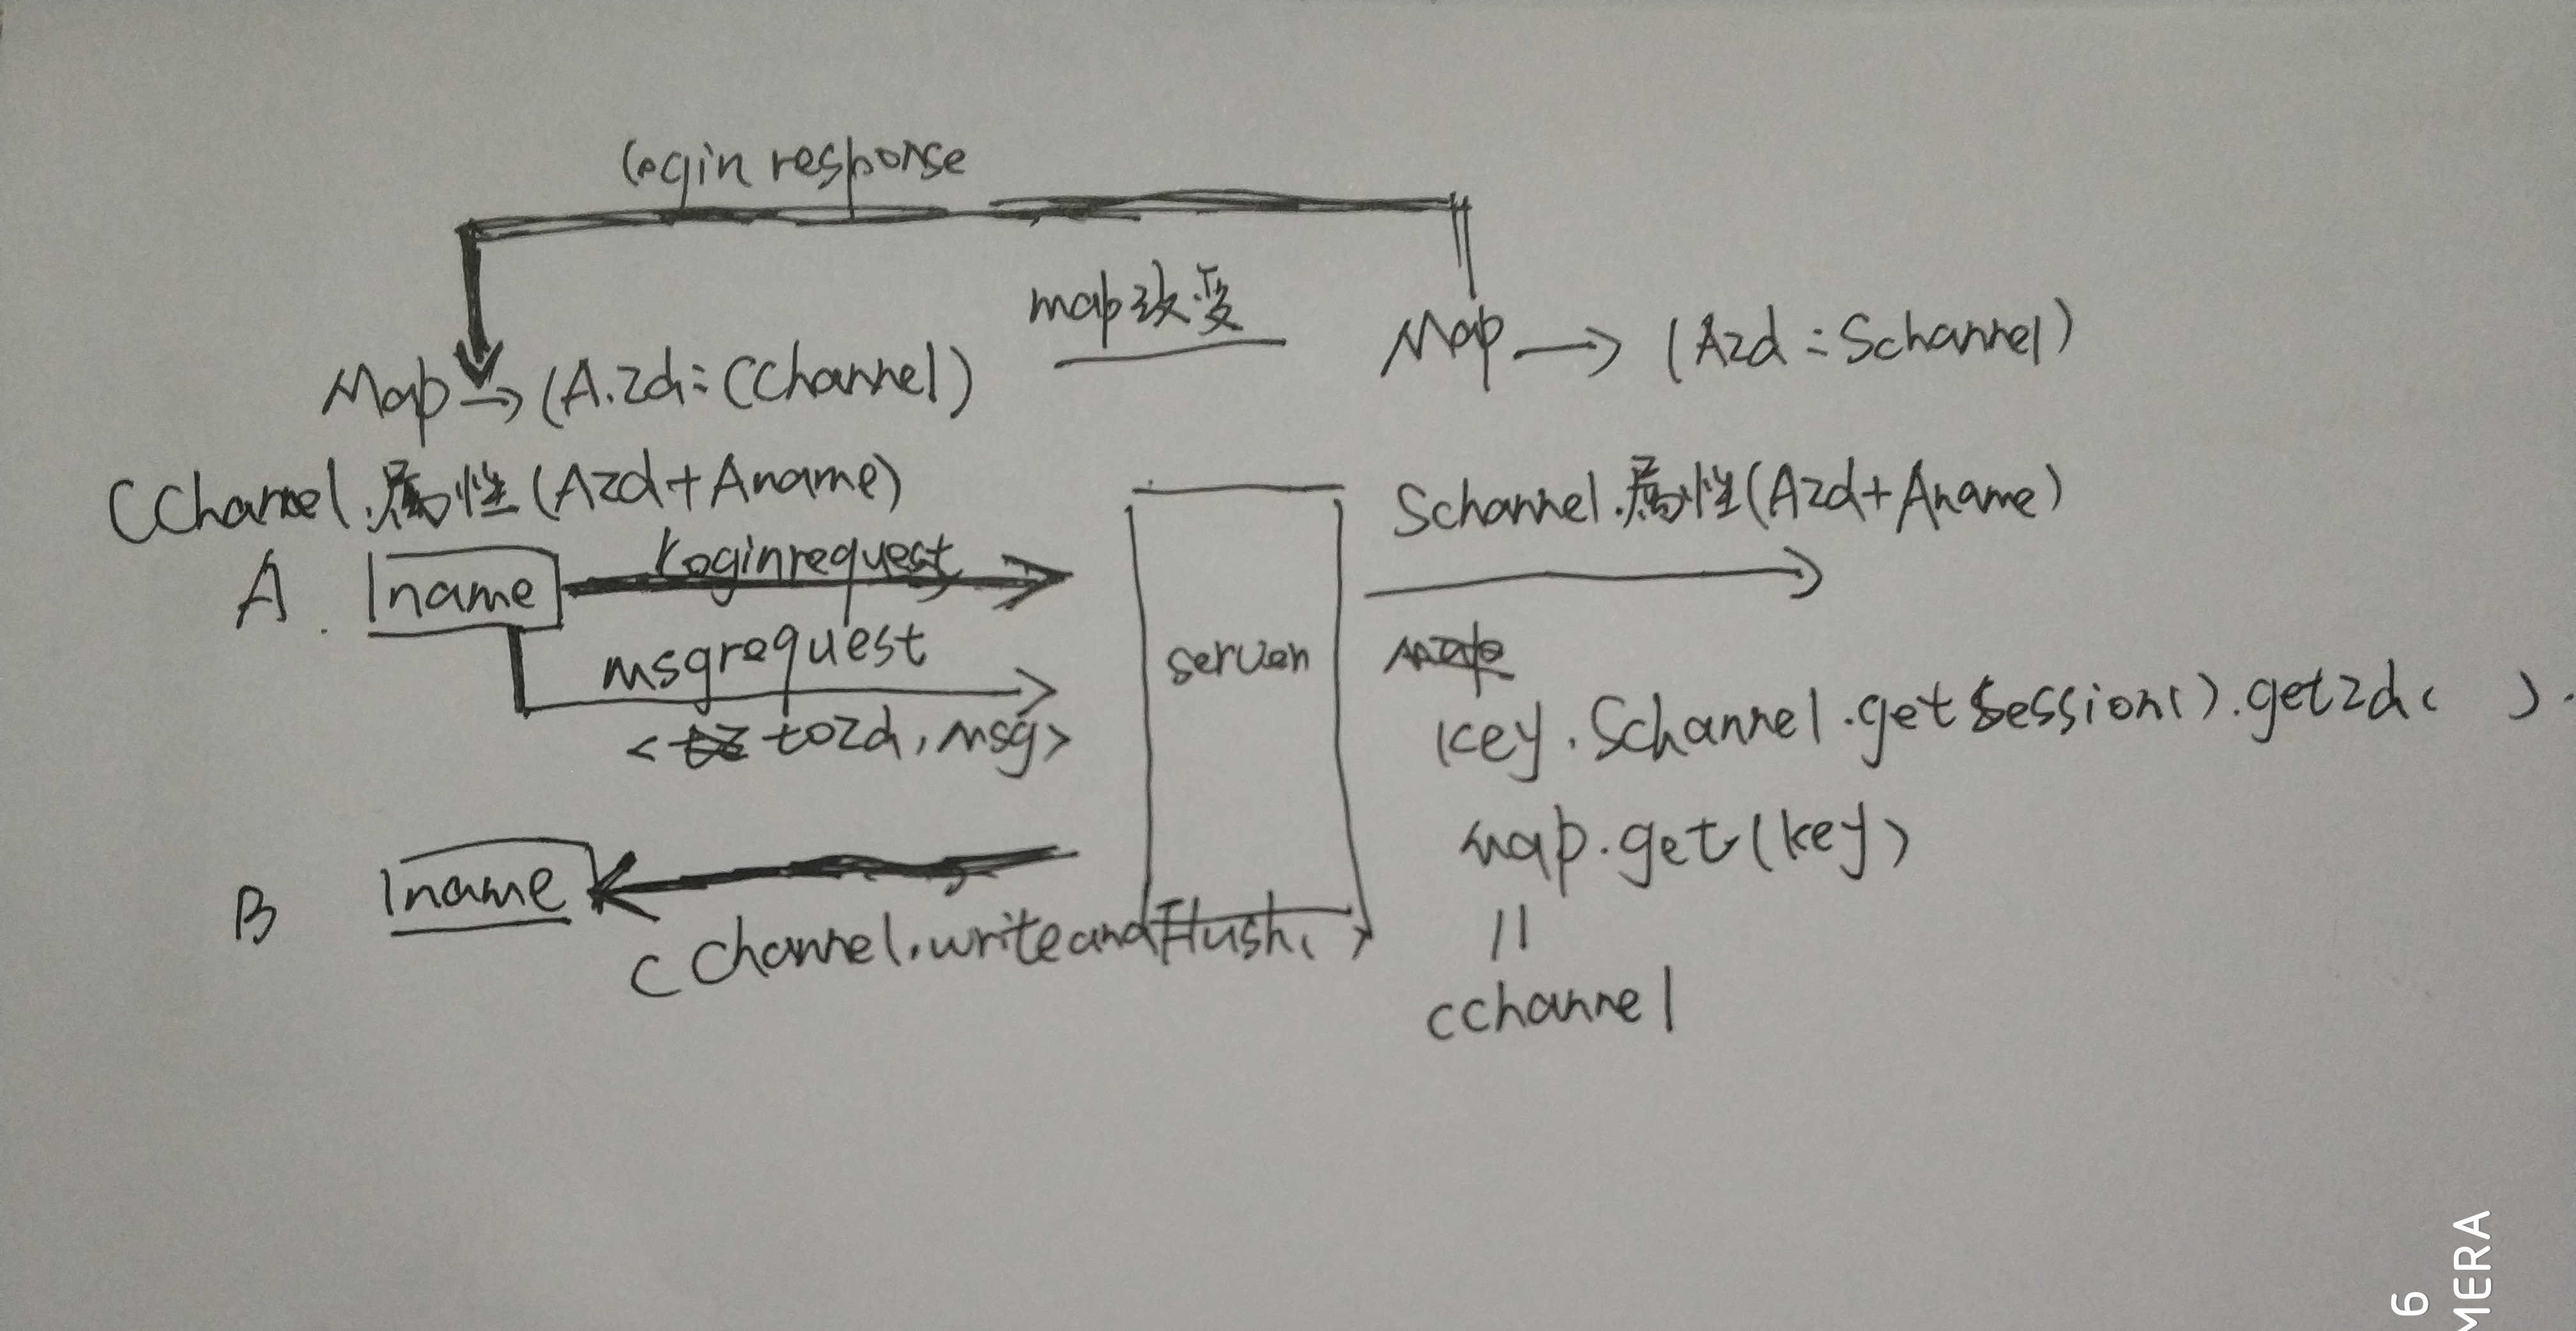 login response
map改变
Map → (Azd = Schannel)
Map → (A.zd = CChannel)
CChannel.属性(Azd+Aname)
Schannel.属性(Azd+Aname)
A. name
loginrequest
msgrequest
server
<tozd, msg>
key.Schannel.getSession().getzd( ).
map.get(key)
B name
CChannel.writeandFlush( )
||
cchannel
6
MERA